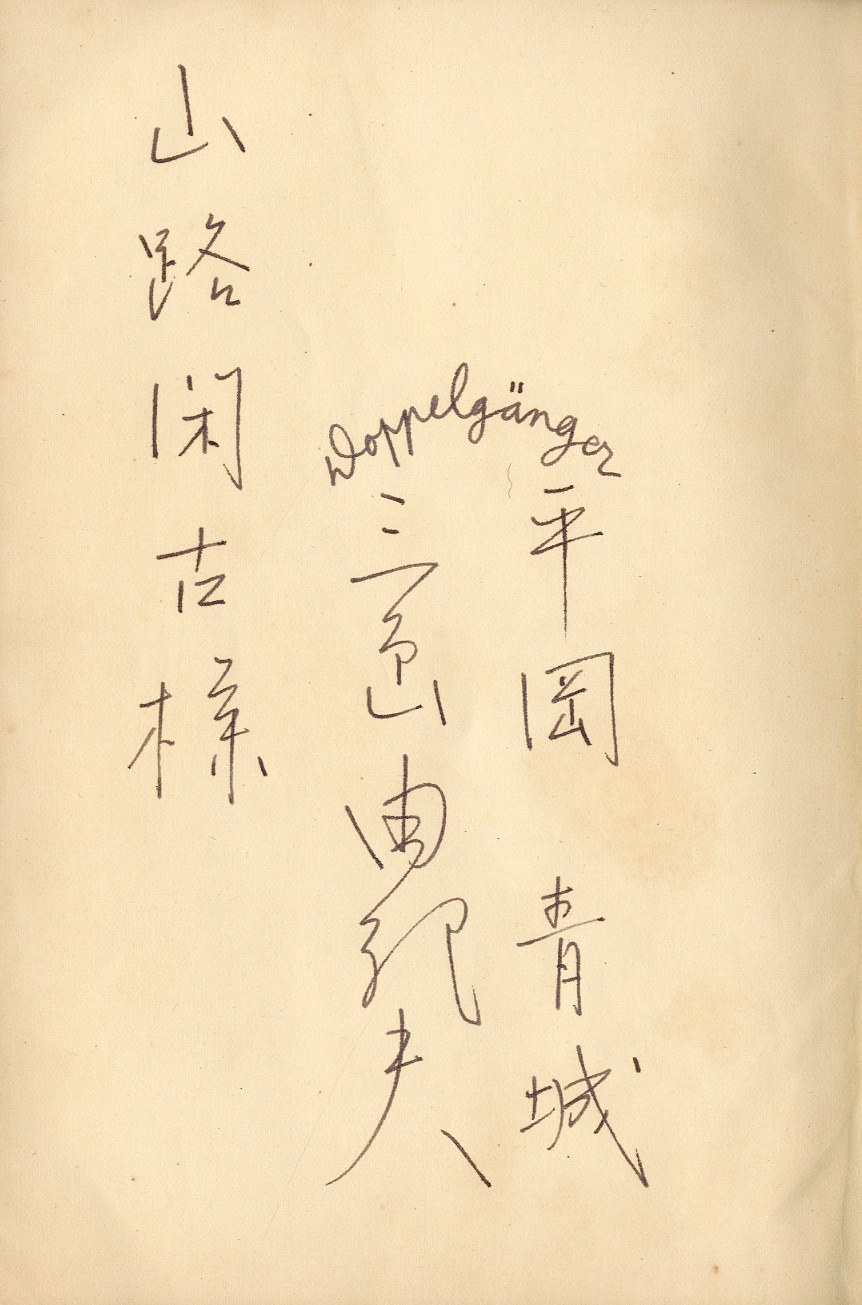 Doppelgänger
平岡 青城
三島由紀夫
山路閑古様